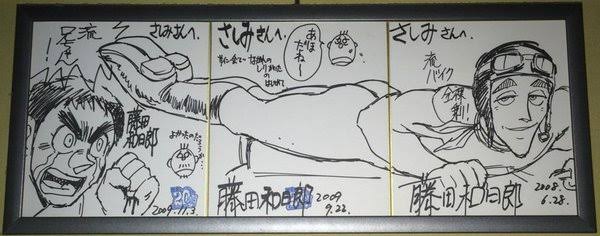 さしみさんへ。
流
兄ちゃん!
藤田
和日郎
よかったのだ
ろうか…
2009.11.3
さしみさんへ。
あほ
だねー
藤田和日郎
2009
9.22.
さしみさんへ。
流
バイク
全裸
乗り!
藤田和日郎
2008.
6.28.